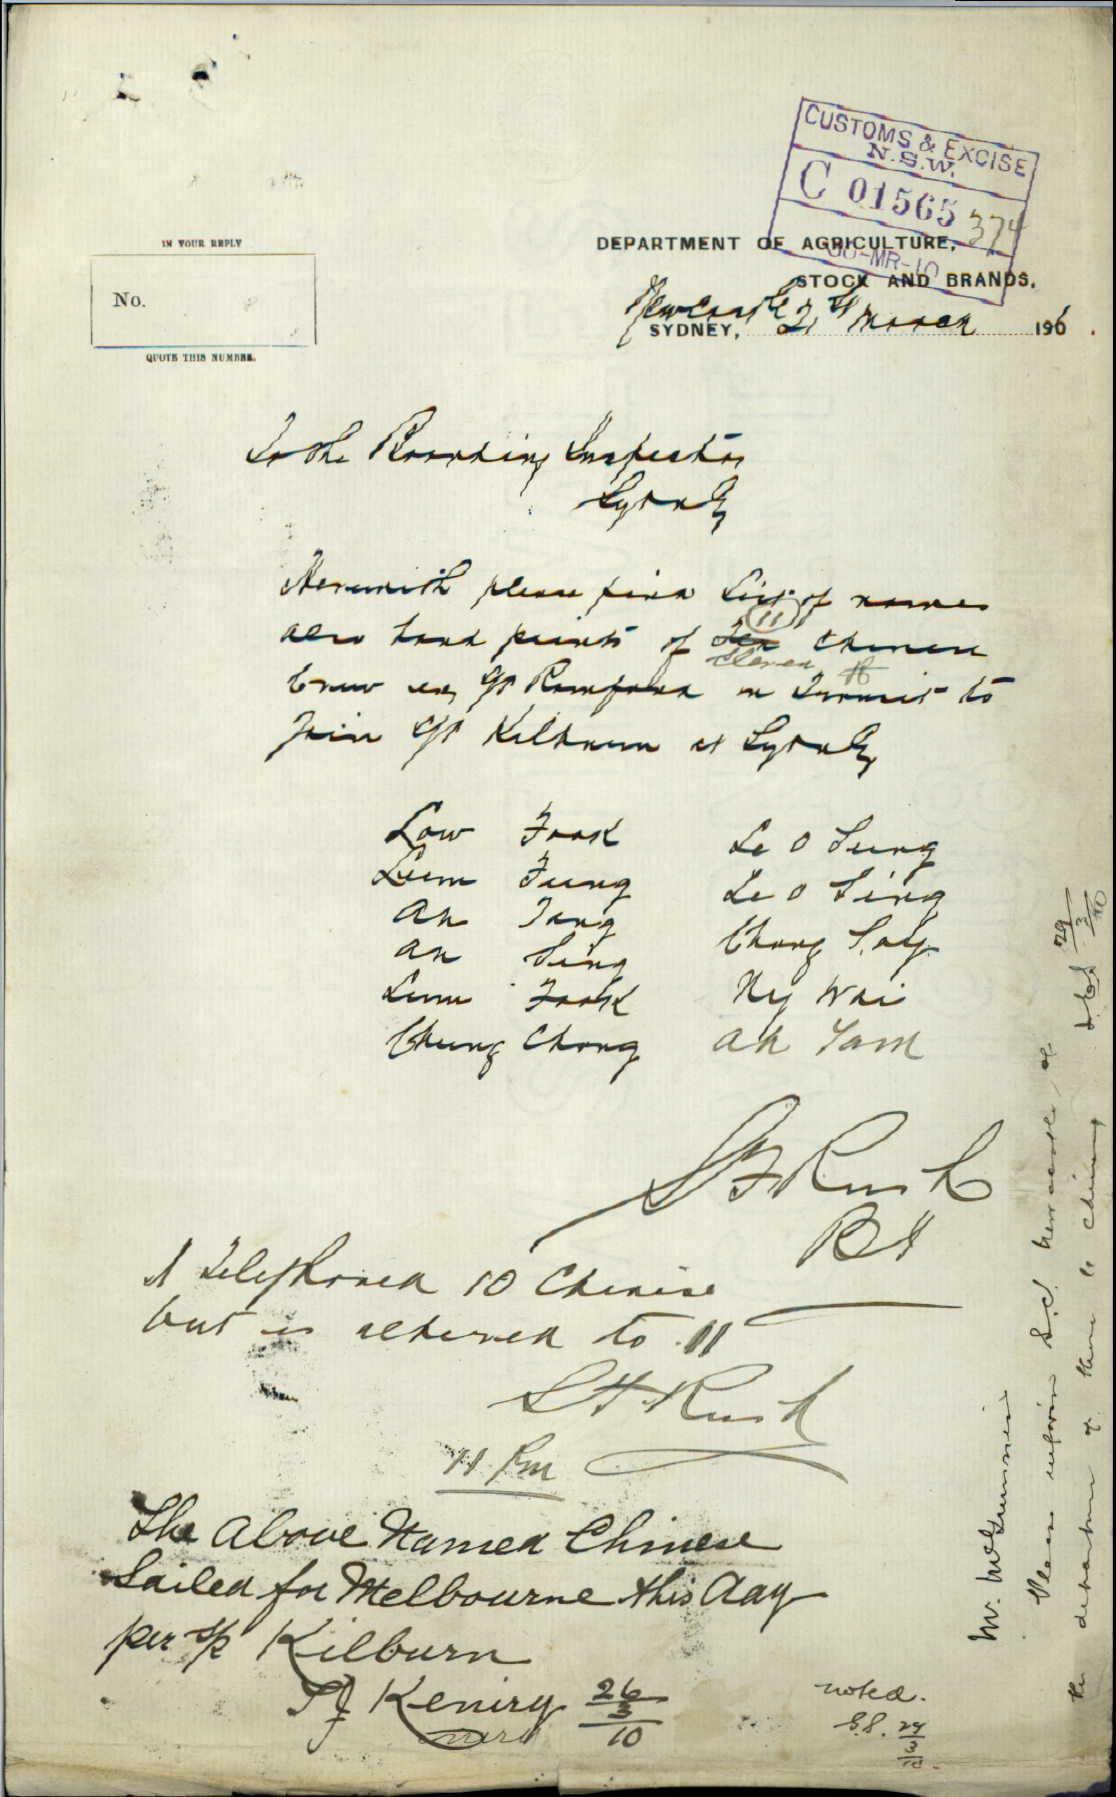 CUSTOMS & EXCISE
N.S.W.
C 01565
374
MR-10
IN YOUR REPLY
No.
QUOTE THIS NUMBER.
DEPARTMENT OF AGRICULTURE,
STOCK AND BRANDS.
Newcastle 21st March
SYDNEY, 190
To the Boarding Inspector
Sydney
Herewith please find List of names
also hand prints of Ten (11) Chinese
Eleven
Crew ex S/S in Transit to
Join S/S Kilburn at Sydney
Low Fook Le O Sung
Lum Fung Le O Sing
Ah Tang Chong Soy
Ah Sing Ny Wai
Lum Fook Ah Yam
Chung Chong
Rush
BI
I Telephoned 10 Chinese
but is altered to 11
Rush
11 Pm
The Above Named Chinese
Sailed for Melbourne this day
per Kilburn
Keniry 26/3/10
noted.
Mr.
Please inform S.C. Newcastle of
the departure of these 11 Chinese
29/3/10